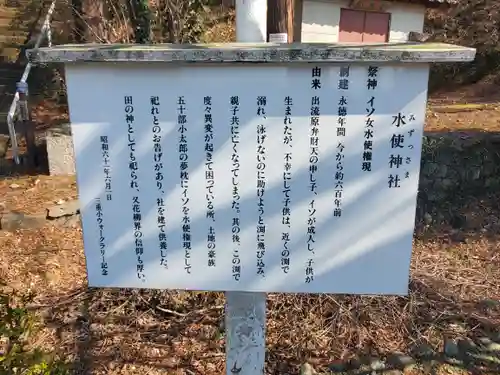 水使神社
みずっさま
祭神 イソ女水使権現
創建 永徳年間 今から六百年前
由来 出流原弁財天の申し子、イソが成人し、子供が
生まれたが、不幸にして子供は、近くの淵で
溺れ、泳げないのに助けようと淵に飛び込み、
親子共に亡くなってしまった。其の後、この淵で
度々異変が起きて困っている所、土地の豪族
五十部小太郎の夢枕にイソを水使権現として
祀れとのお告げがあり、社を建て供養した。
田の神としても祀られ、又花柳界の信仰も厚い。
昭和六十一年六月二日
三重小ウォークラリー記念